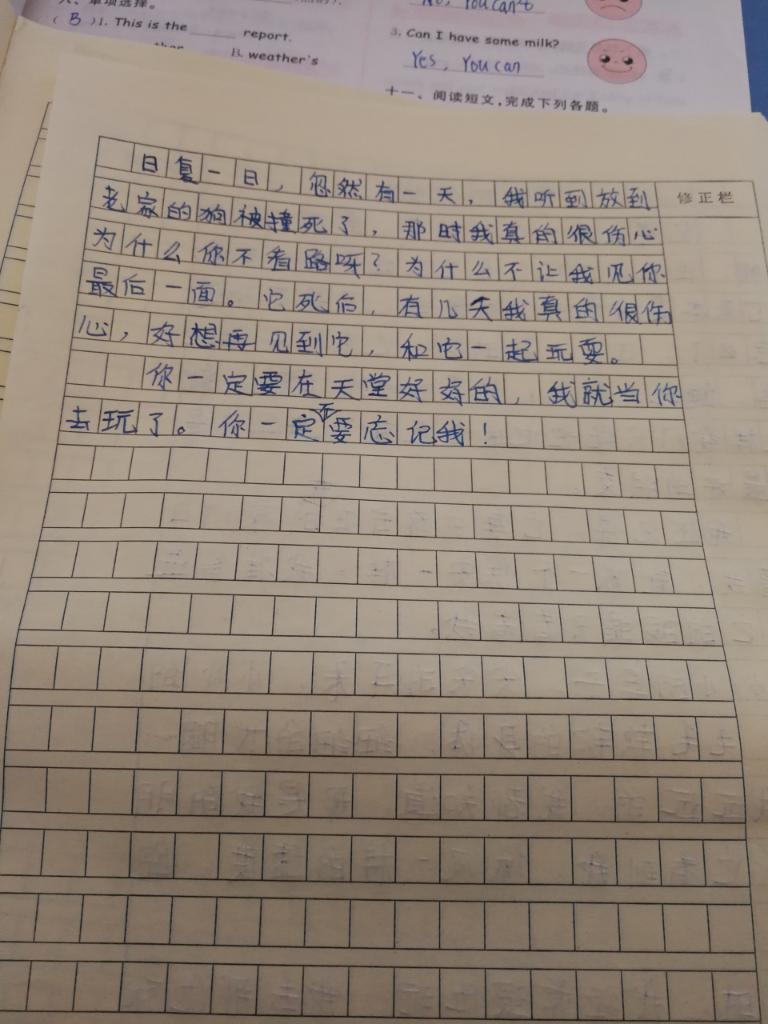 六、单项选择。
( B ) 1. This is the ______ report.
B. weather's
No, You can't
3. Can I have some milk?
Yes, You can
十一、阅读短文,完成下列各题。
修正栏
日复一日，忽然有一天，我听到放到
老家的狗被撞死了，那时我真的很伤心
为什么你不看路呀？为什么不让我见你
最后一面。它死后，有几天我真的很伤
心，好想再见到它，和它一起玩耍。
你一定要在天堂好好的，我就当你
去玩了。你一定不要忘记我！